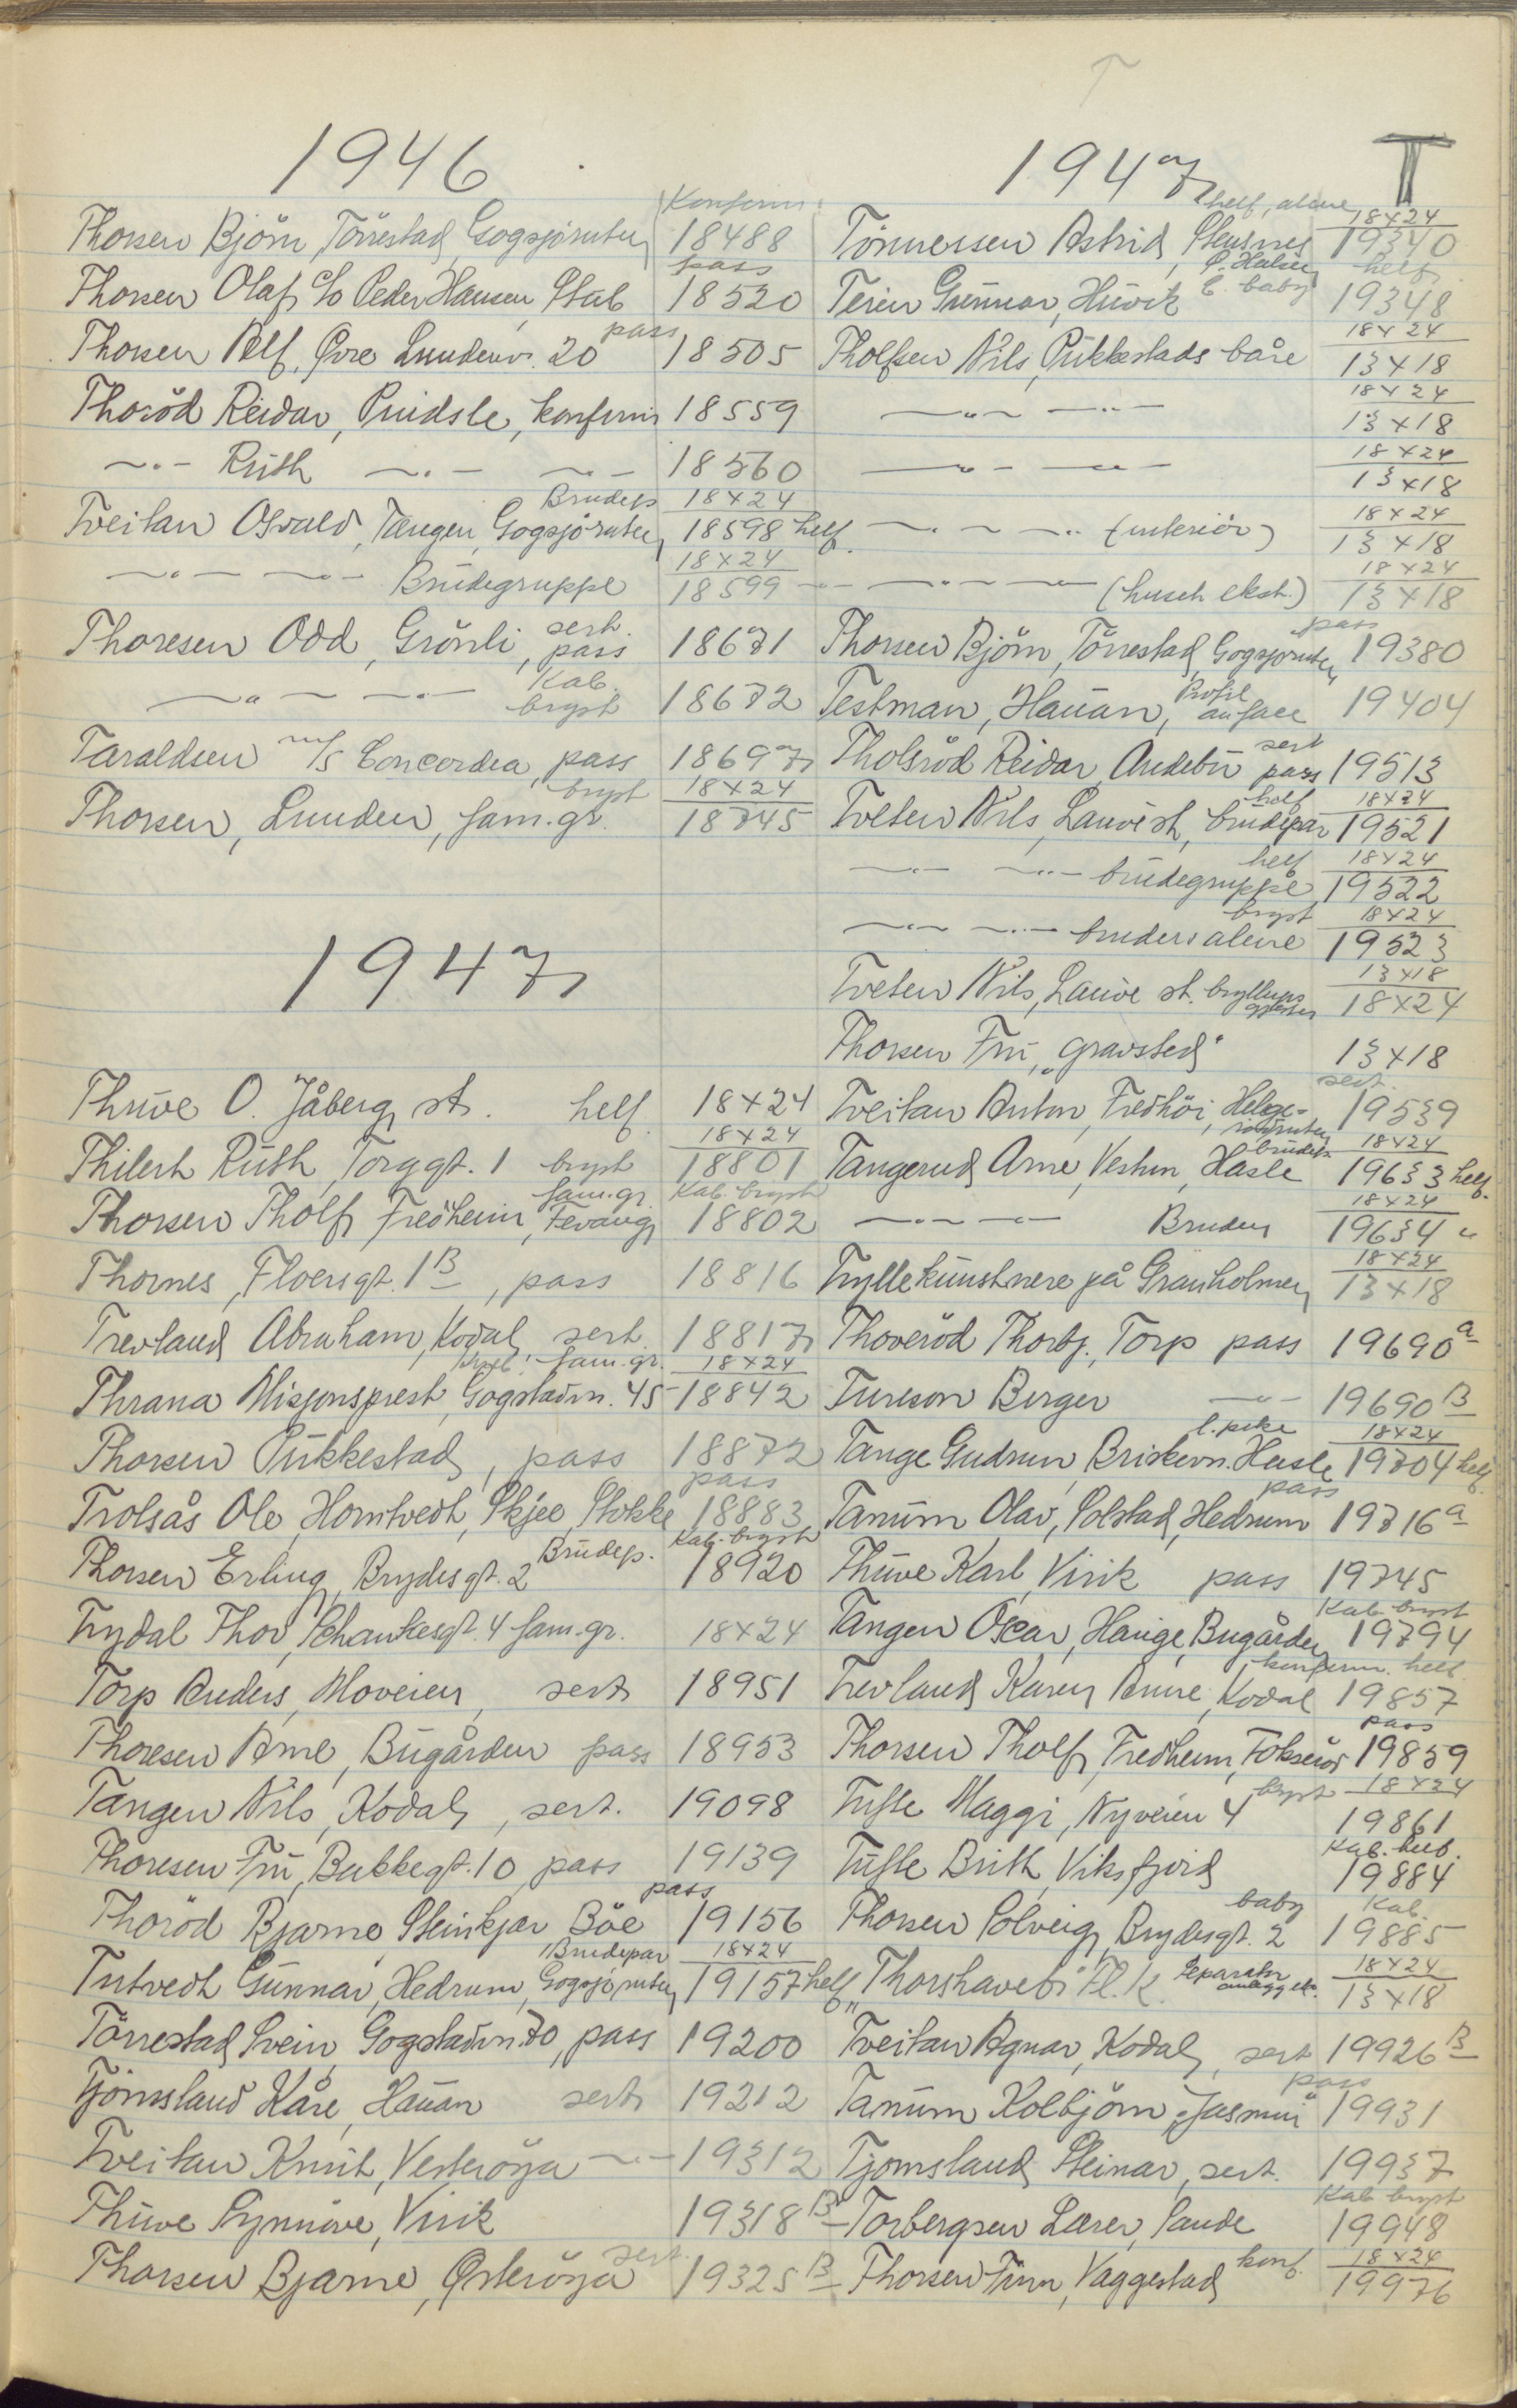 T
1946
Thorsen Björn, Törrestad, Gogsjöruten Konfirm. 18488
Thorsen Olaf c/o Peder Hansen, Stub pass 18520
Thorsen Alf, Øvre Lundenv. 20 pass 18505
Thoröd Reidar, Pridsle, konfirm 18559
—"— Ruth —"— —"— 18560
Tveitan Osvald, Tangen, Gogsjöruten Brudep 18x24 18598 helf.
—"— —"— Brudegruppe 18x24 18599 —"—
Thoresen Odd, Grönli, sert. pass 18671
—"— —"— Kab. bryst 18672
Taraldsen m/s Concordia, pass 18697
Thorsen, Lunden, fam.gr. bryst 18x24 18745
1947
Thuve O. Jåberg st. helf. 18x24
Thilert Ruth, Torggt. 1 bryst 18x24 18801
Thorsen Tholf, Fredheim, Fevang fam.gr. Kab. bryst 18802
Thornes, Floersgt. 1B, pass 18816
Trevland Abraham, Kodal, sert. 18817
Thrana Misjonsprest, Gogstadvn. 45 bryst. fam.gr. 18x24 18842
Thorsen Pukkestad, pass 18872
Trolsås Ole, Homtvedt, Skjee, Stokke pass 18883
Thorsen Erling, Brydesgt. 2 Brudep. Kab. bryst 18920
Trydal Thor, Schankesgt. 4 fam.gr. 18x24
Torp Anders, Moveien, sert 18951
Thoresen Arne, Bugården pass 18953
Tangen Nils, Kodal, sert. 19098
Thoresen Fru, Bakkegt. 10 pass 19139
Thoröd Bjarne Steinkjær Böe pass 19156
Tutvedt Gunnar, Hedrum, Gogsjöruten Brudepar 18x24 19157 helf
Törrestad Svein, Gogstadvn. 70, pass 19200
Tjömsland Kåre, Hauan sert 19212
Tveitan Knut, Vesteröya —"— 19312
Thuve Synnöve, Virik 19318 B
Thorsen Bjarne, Østeröya sert. 19325 B
1947
T
Tönnessen Astrid, Stensnes, helf, alene 18x24 19340
Terin Gunnar, Huvik helf. 19348
Tholfsen Nils, Pukkestads båre 18x24 13x18
—"— —"— 18x24 13x18
—"— —"— 18x24 13x18
—"— —"— (interiör) 18x24 13x18
—"— —"— (huset ekst.) 18x24 13x18
Thorsen Björn, Törrestad, Gogsjöruten pass 19380
Testman, Hauan, Profil anface 19404
Tholsröd Reidar, Andebu sert pass 19513
Tveten Nils, Lauve st, brudepar helf 18x24 19521
—"— —"— brudegruppe helf 18x24 19522
—"— —"— bruden alene bryst 18x24 19523
Tveten Nils, Lauve st. bryllups gjester 13x18 18x24
Thorsen Fru, "gravsted" 13x18
Tveitan Anton, Fredhöi, Helge-rödruten sert. 19539
Tangerud Arne, Vestun, Hasle brudep. 18x24 19633 helf.
—"— —"— Bruden 18x24 19634 "
Tryllekunstnere på Granholmen 18x24 13x18
Thoveröd Thorbj., Torp pass 19690 a
Tureson Berger —"— 19690 B
Tange Gudrun, Briskevn. Hasle l. pike 18x24 19704 helf.
Tanum Olav, Solstad, Hedrum pass 19716 a
Thuve Karl, Virik pass 19745
Tangen Oscar, Hauge, Bugården Kab. bryst 19794
Trevland Karen Anne, Kodal konfirm. helf 19857
Thorsen Tholf, Fredheim, Fokseröd pass 19859
Tufte Maggi, Nyveien 4 bryst 18x24 19861
Tufte Brith, Viksfjord Kab. helf. 19884
Thorsen Solveig, Brydesgt. 2 baby Kab. 19885
"Thorshavet" Fl. K. Separator anlegg etc. 18x24 13x18
Tveitan Agnar, Kodal, sert 19926 B
Tanum Kolbjörn, "Jasmin" pass 19931
Tjomsland Steinar, sert. 19937
Torbergsen Lærer, Sande Kab bryst 19948
Thorsen Finn, Vaggestad konf. 18x24 19976